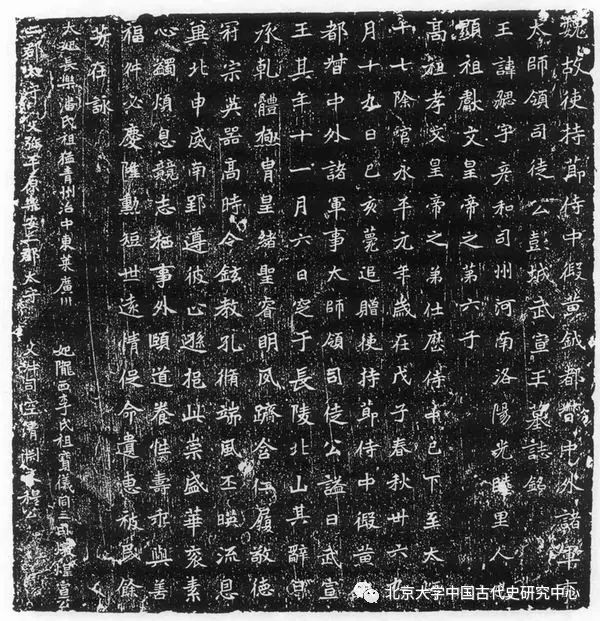 魏故使持節侍中假黃鉞都督中外諸軍事
太師領司徒公彭城武宣王墓誌銘
王諱勰字彥和司州河南洛陽光睦里人也
顯祖獻文皇帝之第六子
高祖孝文皇帝之弟仕歷侍中已下至太師
十七除官永平元年歲在戊子春秋卅六九
月十九日己亥薨追贈使持節侍中假黃鉞
都督中外諸軍事太師領司徒公謚曰武宣
王其年十一月六日窆于長陵北山其辭曰
承乹體極胄皇緒聖睿明夙躋含仁履敬德
冠宗英器高時令鉉教孔脩端風丕暎流恩
冀北申威南郢遵彼止遜挹此崇盛華衮素
心蠲煩息競志栖事外頤道養性壽乖與善
福舛必慶隆勳短世遠情促命遺惠被民餘
芳在詠
太妃長樂潘氏祖猛青州治中東萊廣川
二郡太守父彌平原樂安二郡太守
妃隴西李氏祖寶儀同三司燉煌宣公
父沖司空清淵穆公
北京大学中国古代史研究中心